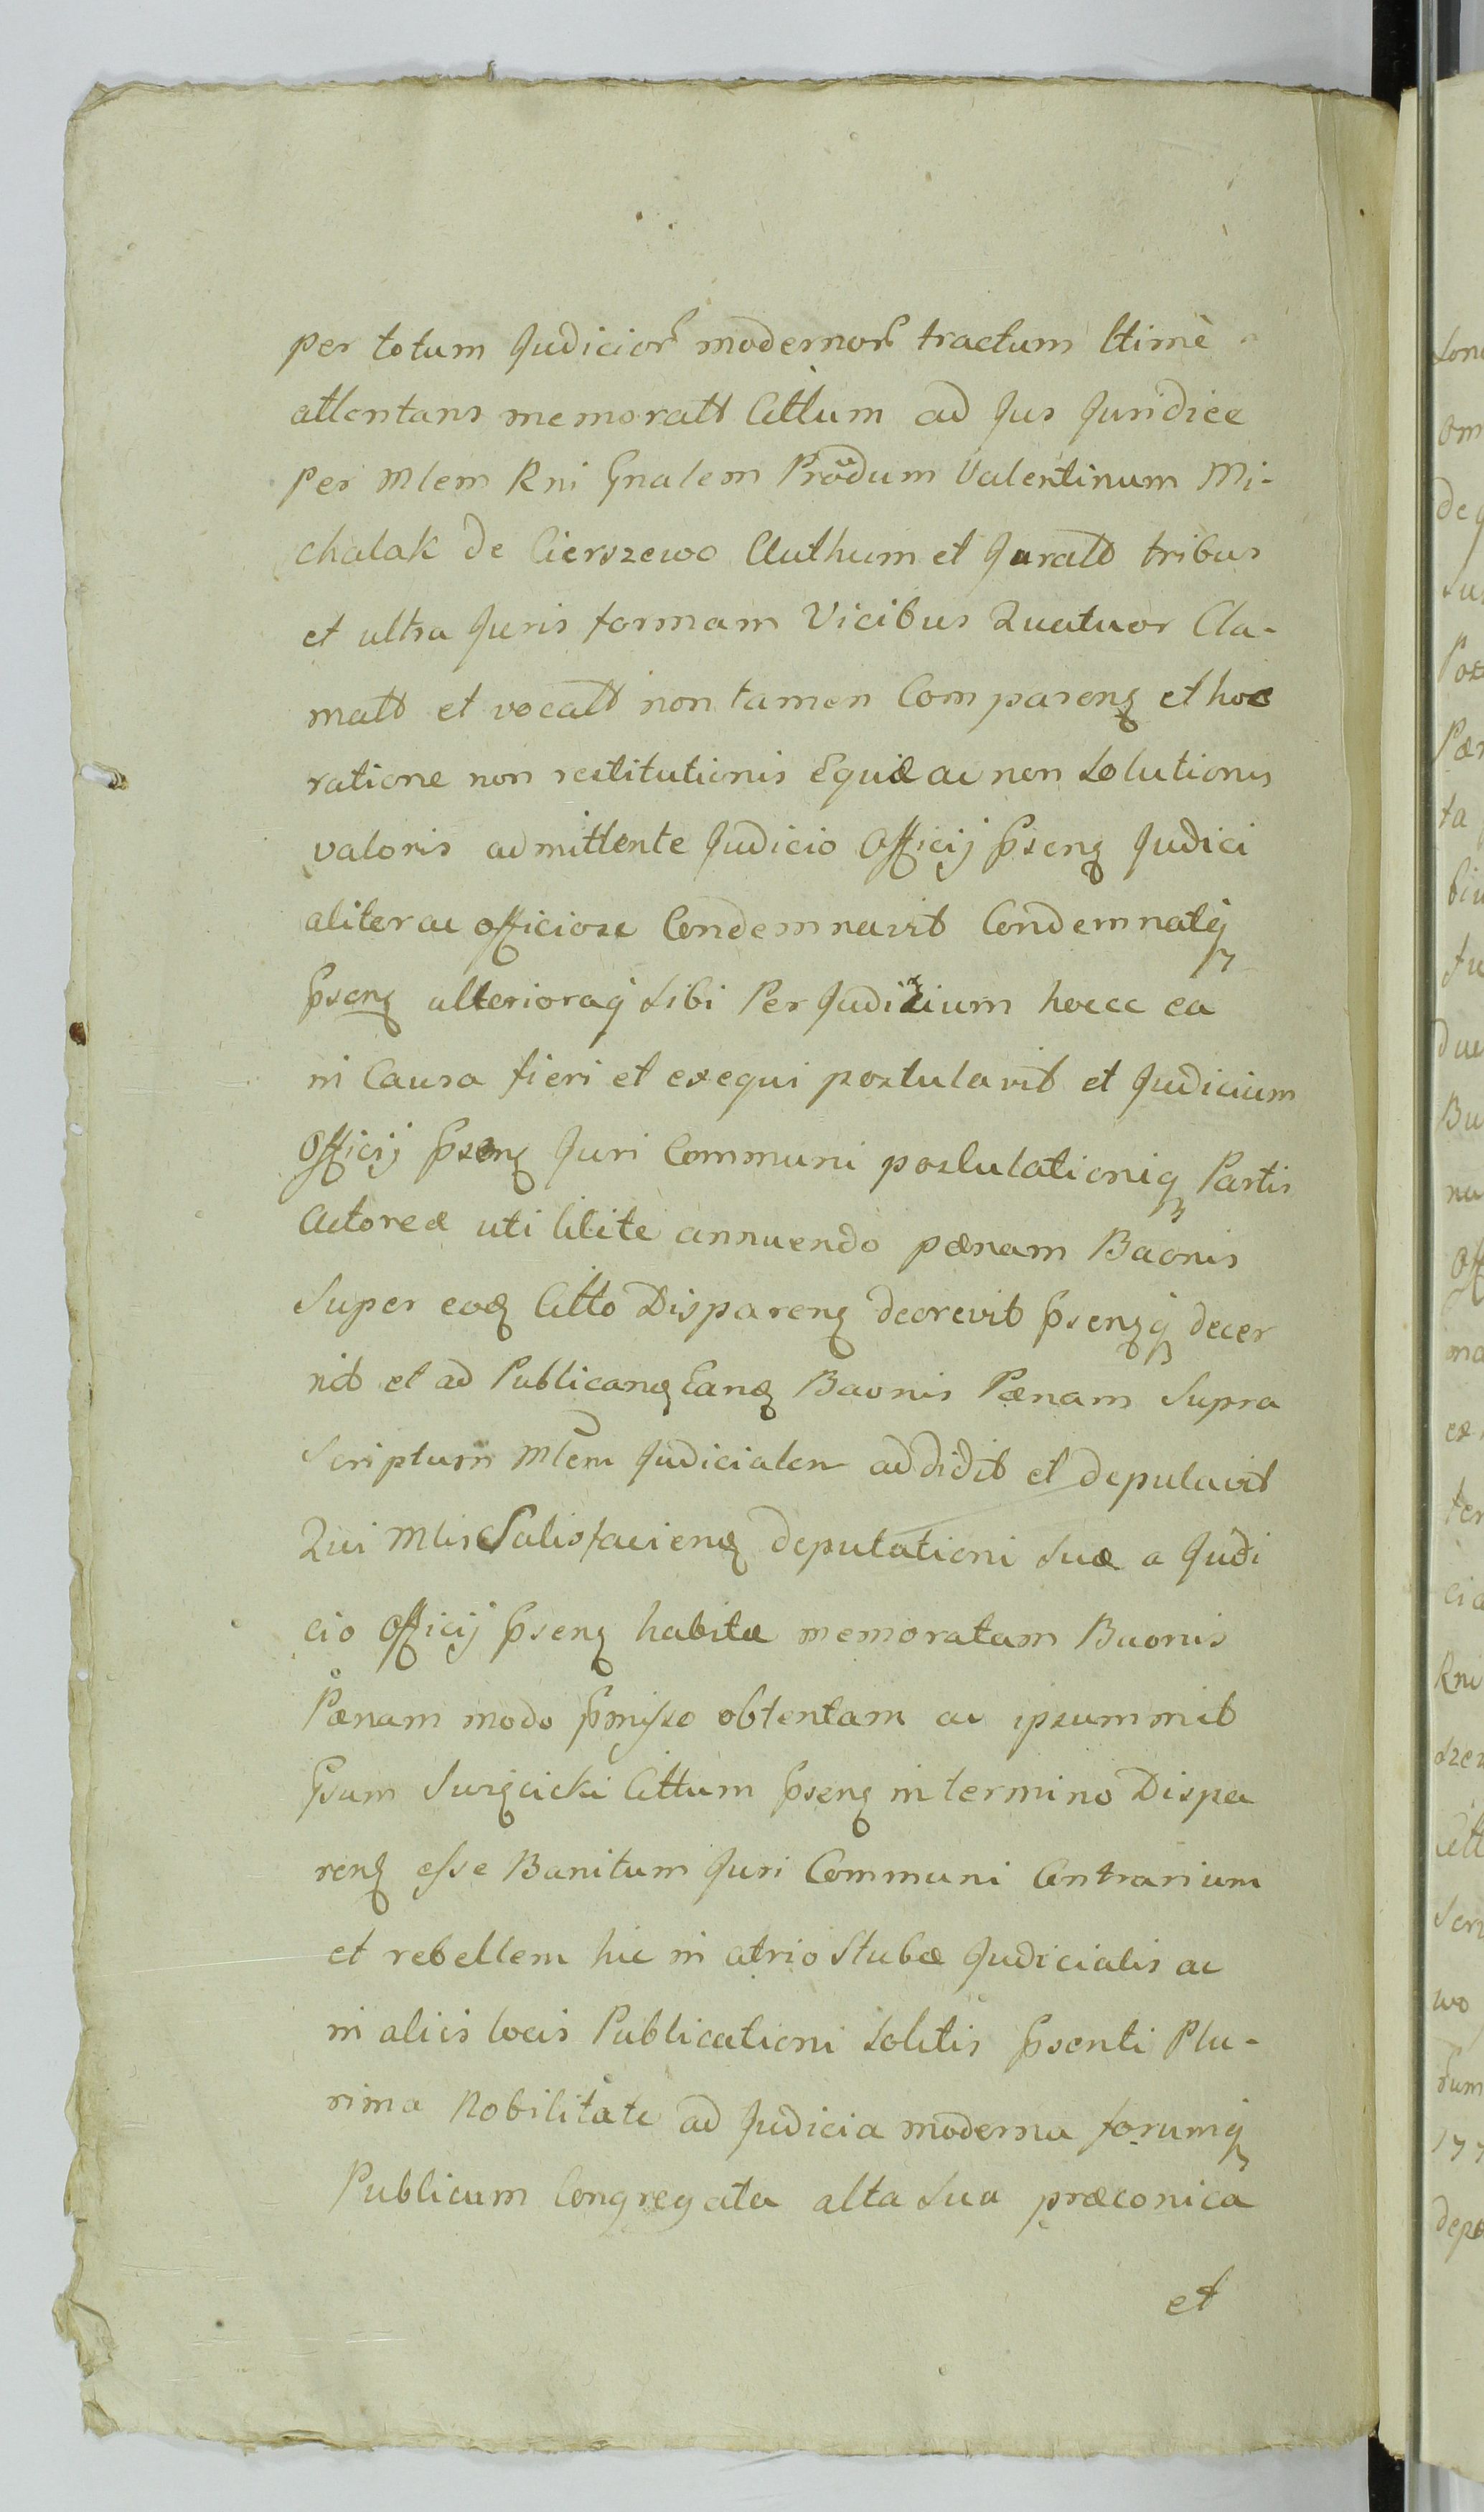 per totum Judicior modernor tractum ltimè
attentans memoratt Cittum ad Jus Juridice
per Mlem Rni Gnalem Prōdum Valentinum Mi-
chalak de Cierszewo Authum et Juratt tribus
et ultra Juris formam Vicibus Quatuor Cla-
matt et vocatt non tamen Comparenꝗ et hoc
ratione non restitutionis Equæ ac non solutionis
valoris admittente Judicio Officij prsenꝗ Judici
aliter ac officiose Condemnavit Condemnatꝗ
prsenꝗ ulterioraꝗ sibi Per Judicium hocce ea
in Causa fieri et exequi postulavit et Judicium
Officij prsenꝗ Juri Communi postulationiꝗ Partis
Actoreæ uti licite annuendo pænam Baonis
super eoꝗ Citto Disparenꝗ decrevit prsenꝗꝗ decer
nit et ad Publicanꝗ Eanꝗ Baonis Pænam supra
scriptum Mlem Judicialem addidit et deputavit
Qui Mlis Satisfacienꝗ deputationi suæ a Judi
cio Officij prsenꝗ habitæ memoratam Baonis
Pænam modo prmisso obtentam ac ipsummet
Gsum Cittum prsenꝗ in termino Dispa
renꝗ esse Banitum Juri Communi Contrarium
et rebellem hic in atrio Stubæ Judicialis ac
in aliis locis Publicationi solitis prsenti Plu-
rima Nobilitate ad Judicia moderna forumꝗ
Publicum Congregata alta sua præconica
et